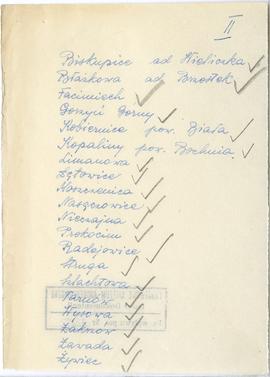 II
Biskupice ad Wieliczka
Błażkowa ad Brzostek
Facimiech
Gorzyń Górny
Kobiernice pow. Biała
Kopaliny pow. Bochnia
Limanowa
Łętowice
Moszczenica
Naszacowice
Nieczajna
Prokocim
Radajowice
Struga
Szlachtowa
Tarnów
Wysowa
Zakrzów
Zawada
Żywiec